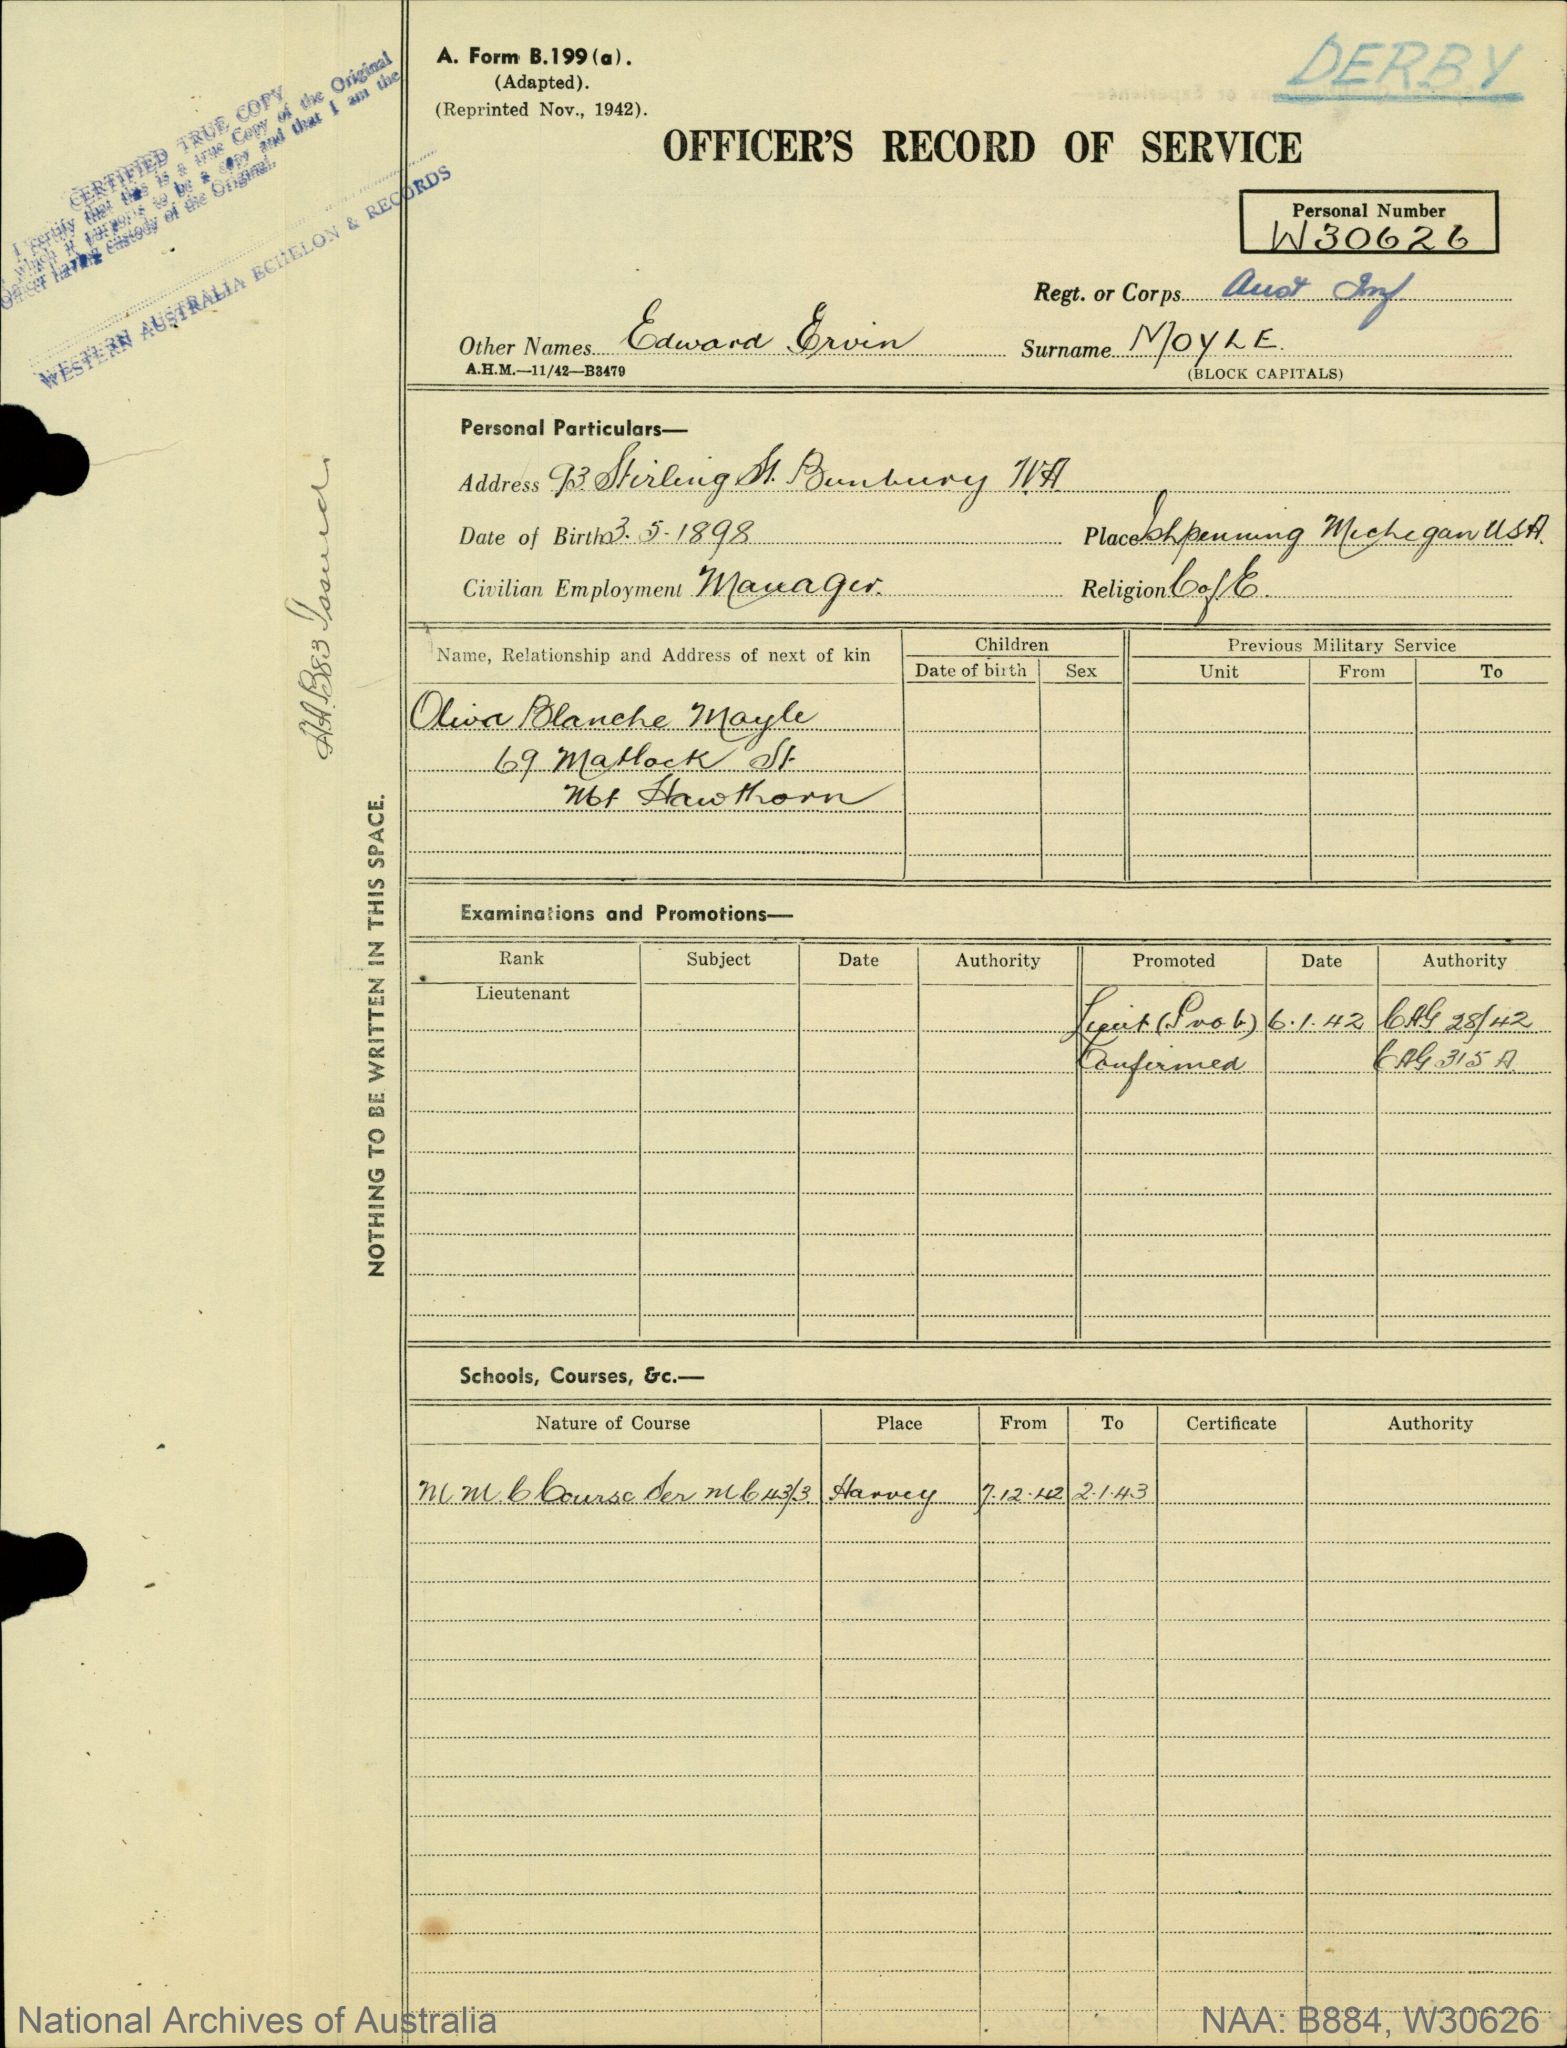 A. Form B.199(a).
(Adapted).
(Reprinted Nov., 1942).
DERBY
OFFICER'S RECORD OF SERVICE
CERTIFIED TRUE COPY
I certify that this is a true Copy of the Original
which it purports to be a copy and that I am the
Officer having custody of the Original.
WESTERN AUSTRALIA ECHELON & RECORDS
Personal Number
W30626
Regt. or Corps Aust Inf
Other Names Edward Ervin Surname MOYLE.
A.H.M.—11/42—B3479 (BLOCK CAPITALS)
Personal Particulars—
Address 93 Stirling St. Bunbury W.A.
Date of Birth 3.5.1898 Place Ishpenning Michegan USA.
Civilian Employment Manager. Religion C of E.
Name, Relationship and Address of next of kin Children Previous Military Service
Date of birth Sex Unit From To
Oliva Blanche Moyle
69 Matlock St
Mt Hawthorn
B83 Issued
NOTHING TO BE WRITTEN IN THIS SPACE.
Examinations and Promotions—
Rank Subject Date Authority Promoted Date Authority
Lieutenant
Lieut (Prob) 6.1.42 CAG 28/42
Confirmed CAG 315 A
Schools, Courses, &c.—
Nature of Course Place From To Certificate Authority
M M.C Course Ser MC 43/3 Harvey 7.12.42 2.1.43
National Archives of Australia NAA: B884, W30626